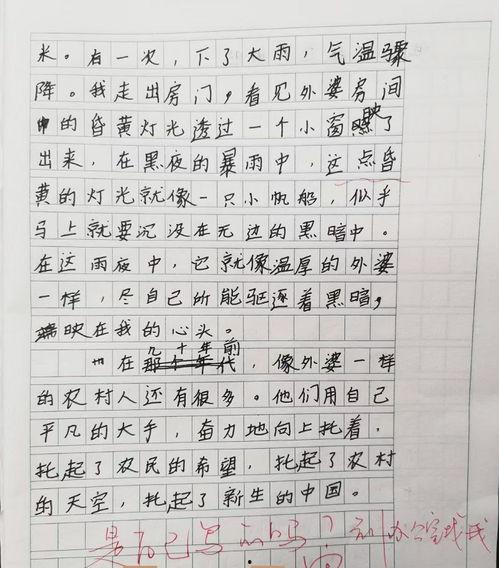 米。有一次，下了大雨，气温骤
降。我走出房门，看见外婆房间
中的昏黄灯光透过一个小窗映了
出来，在黑夜的暴雨中，这点昏
黄的灯光就像一只小帆船，似乎
马上就要沉没在无边的黑暗中。
在这雨夜中，它就像温厚的外婆
一样，尽自己所能驱逐着黑暗，
映在我的心头。
在九十年前，像外婆一样
的农村人还有很多。他们用自己
平凡的大手，奋力地向上托着，
托起了农民的希望，托起了农村
的天空，托起了新生的中国。
是自己写的吗？到办公室找我